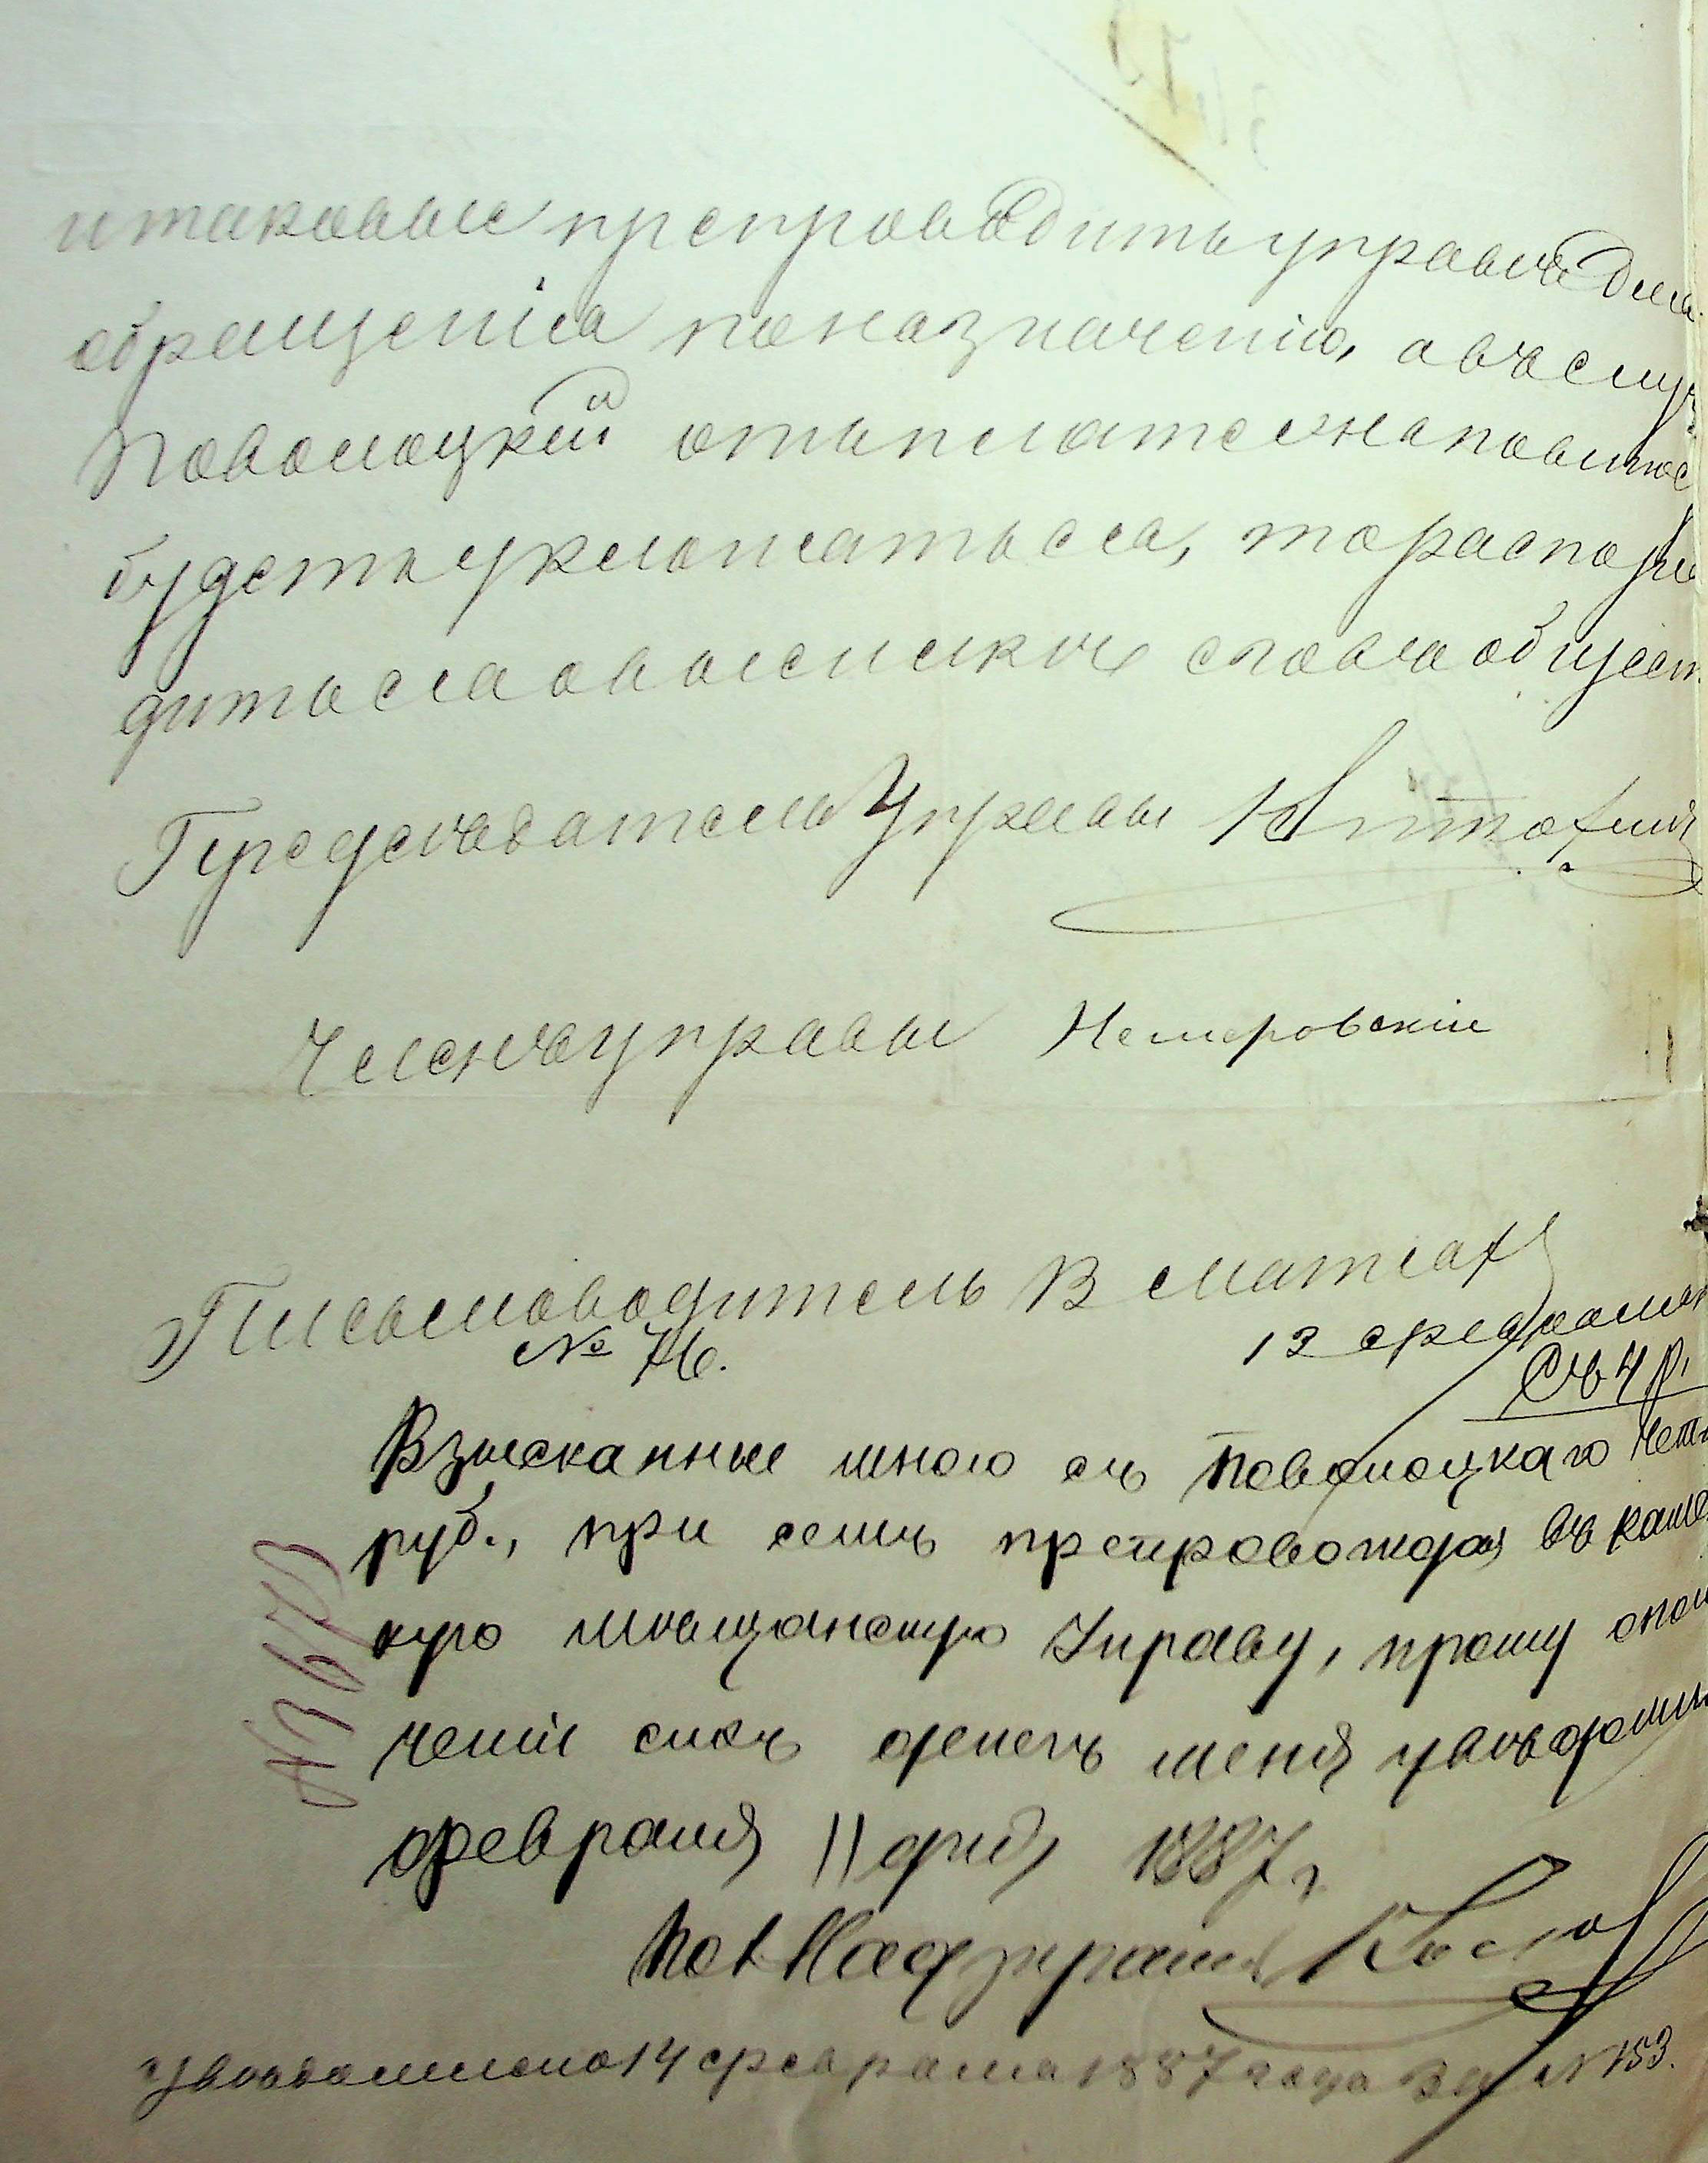 и таковые препроводить управѣ для
обращенія по назначенію, а въ случ
Поволоцкій отъ платежа повинос
будетъ уклонятьсся, то распоря
дитьсся о высилки его въ общест
Предсѣдатель Управы
Членъ управы Немеровскій
Письмоводитель В
№ 76. 12 февраля
Съ 4 р.
Взысканные мною съ Поволоцкаго чет
руб., при семъ препровождая въ
кую Мѣщанскую Управу, прошу о пол
ченіи сихъ денегъ меня увѣдомить
Февраля 11 дня 1887 г
Пол Надзиратель
Увѣдомлено 14 февраля 1887 года за № 153.